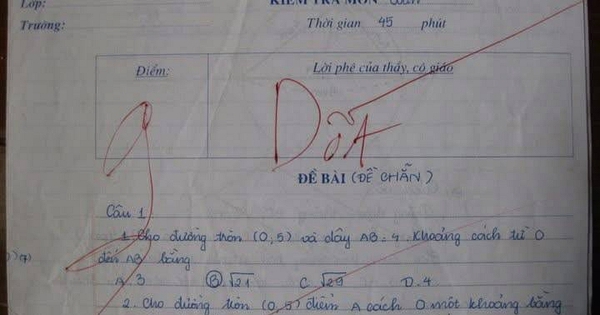 Lớp:
KIỂM TRA MÔN Toán
Trường:
Thời gian 45 phút
Điểm:
Lời phê của thầy, cô giáo
9
Dõa
ĐỀ BÀI (ĐỀ CHẴN)
Câu 1
1. Cho đường tròn (O, 5) và dây AB = 4. Khoảng cách từ O
đến AB bằng
A. 3 B. √21 C. √29 D. 4
2. Cho đường tròn (O, 5) điểm A cách O một khoảng bằng